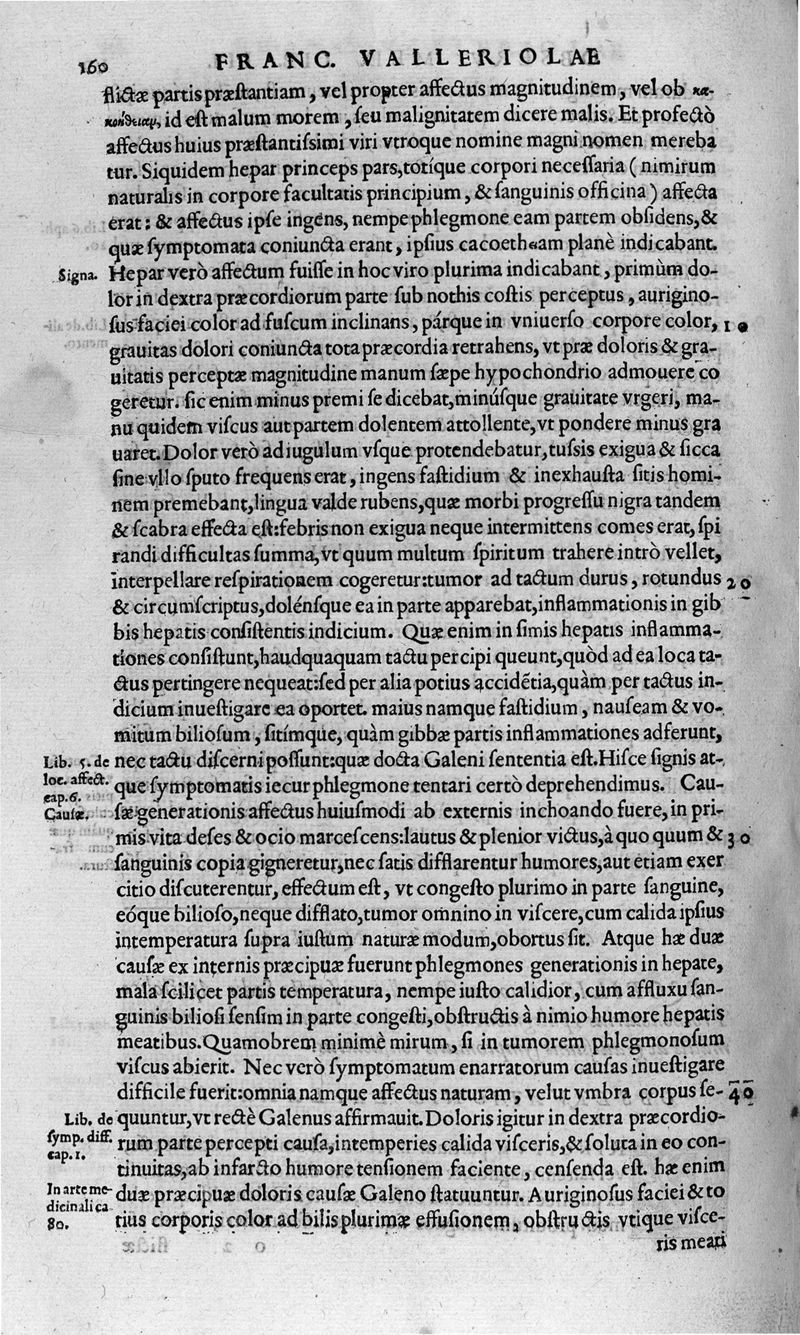 160
FRANC. VALLERIOLAE
flictæ partis præstantiam, vel propter affectus magnitudinem, vel ob κα-
κοήθειαμ, id est malum morem, ſeu malignitatem dicere malis. Et profectò
affectus huius præſtantiſsimi viri vtroque nomine magni nomen mereba
tur. Siquidem hepar princeps pars, totíque corpori neceſſaria (nimirum
naturalis in corpore facultatis principium, & ſanguinis officina) affecta
erat: & affectus ipſe ingens, nempe phlegmone eam partem obſidens, &
quæ ſymptomata coniuncta erant, ipſius cacoethiam planè indicabant.
Signa. Hepar verò affectum fuiſſe in hoc viro plurima indicabant, primùm do-
lor in dextra præcordiorum parte ſub nothis coſtis perceptus, aurigino-
ſus faciei color ad fuſcum inclinans, párque in vniuerſo corpore color, 10
grauitas dolori coniuncta tota præcordia retrahens, vt præ doloris & gra-
uitatis perceptæ magnitudine manum ſæpe hypochondrio admouere co
geretur. ſic enim minus premi ſe dicebat, minúſque grauitate vrgeri, ma-
nu quidem viſcus aut partem dolentem attollente, vt pondere minus gra
uaret. Dolor verò ad iugulum vſque protendebatur, tuſsis exigua & ſicca
ſine vllo ſputo frequens erat, ingens faſtidium & inexhauſta ſitis homi-
nem premebant, lingua valde rubens, quæ morbi progreſſu nigra tandem
& ſcabra effecta eſt: febris non exigua neque intermittens comes erat, ſpi
randi difficultas ſumma, vt quum multum ſpiritum trahere intrò vellet,
interpellare reſpirationem cogeretur: tumor ad tactum durus, rotundus 20
& circumſcriptus, dolénſque ea in parte apparebat, inflammationis in gib
bis hepatis conſiſtentis indicium. Quæ enim in ſimis hepatis inflamma-
tiones conſiſtunt, haudquaquam tactu percipi queunt, quòd ad ea loca ta-
ctus pertingere nequeat: ſed per alia potius accidẽtia, quàm per tactus in-
dicium inueſtigare ea oportet. maius namque faſtidium, nauſeam & vo-
mitum bilioſum, ſitímque, quàm gibbæ partis inflammationes adferunt,
Lib. 5. de nec tactu diſcerni poſſunt: quæ docta Galeni ſententia eſt. Hiſce ſignis at-
loc. affect. que ſymptomatis iecur phlegmone tentari certò deprehendimus. Cau-
cap. 6.
Cauſæ. ſæ generationis affectus huiuſmodi ab externis inchoando fuere, in pri-
mis vita deſes & ocio marceſcens: lautus & plenior victus, à quo quum & 30
ſanguinis copia gigneretur, nec ſatis difflarentur humores, aut etiam exer
citio diſcuterentur, effectum eſt, vt congeſto plurimo in parte ſanguine,
eóque bilioſo, neque difflato, tumor omnino in viſcere, cum calida ipſius
intemperatura ſupra iuſtum naturæ modum, obortus ſit. Atque hæ duæ
cauſæ ex internis præcipuæ fuerunt phlegmones generationis in hepate,
mala ſcilicet partis temperatura, nempe iuſto calidior, cum affluxu ſan-
guinis bilioſi ſenſim in parte congeſti, obſtructis à nimio humore hepatis
meatibus. Quamobrem minimè mirum, ſi in tumorem phlegmonoſum
viſcus abierit. Nec verò ſymptomatum enarratorum cauſas inueſtigare
difficile fuerit: omnia namque affectus naturam, velut vmbra corpus ſe- 40
Lib. de quuntur, vt rectè Galenus affirmauit. Doloris igitur in dextra præcordio-
ſymp. diff. rum parte percepti cauſa, intemperies calida viſceris, & ſoluta in eo con-
cap. 1.
tinuitas, ab infarcto humore tenſionem faciente, cenſenda eſt. hæ enim
In arte me- duæ præcipuæ doloris cauſæ Galeno ſtatuuntur. Auriginoſus faciei & to
dicinali ca
80. tius corporis color ad bilis plurimæ effuſionem, obſtructis vtique viſce-
ris meati